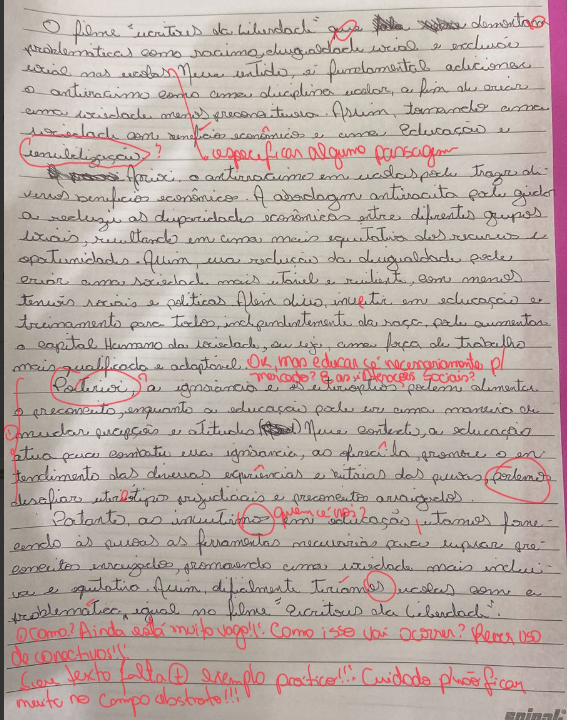 O filme "escritores da Liberdade" que demontana
problemáticas como racismo, desigualdade social e exclusão
social nas escolas. Nesse sentido, é fundamental adicionar
o antirracismo como uma disciplina escolar, a fim de criar
uma sociedade menos preconceituosa. Assim, tornando uma
sociedade com benefício econômicos e uma Educação e
Sensibilização ? especificar alguma passagem
Apixi, o antirracismo em escolas pode trazer di-
versos benefícios econômicos. A abordagem antirracista pode
a reduzir as disparidades econômicas entre diferentes grupos
sociais, resultando em uma mais equitativa dos recursos e
oportunidades. Assim, essa redução da desigualdade pode
criar uma sociedade mais estável e resiliente, com menos
tensões sociais e políticas. Além disso, investir em educação e
treinamento para todos, independentemente da raça, pode aumentar
o capital Humano da sociedade, ou seja, uma força de trabalho
mais qualificada e adaptável. OK, mas educar é necessariamente p/
mercado? E as interações sociais?
Posterior, a ignorância e os podem alimentar
o preconceito, enquanto a educação pode ser uma maneira de
mudar percepções e atitudes Nesse contexto, a educação
atua para combater essa ignorância, ao oferecê la, promove o en-
tendimento das diversas experiências e histórias das pessoas,
desafiar estereótipos prejudiciais e preconceitos arraigados.
Potanto, ao investirmos em educação, estamos forne- quem é nós?
cendo às pessoas as ferramentas necessárias para superar pre-
conceitos enraizados, promovendo uma sociedade mais inclusi-
va e equitativa. Assim, dificilmente teríamos escolas com a
problemática, igual no filme "Escritores da Liberdade".
O como? Ainda está muito vago!!! Como isso vai ocorrer? Rever uso
de conectivos!!!
texto falta (+) exemplo prático!!! Cuidado p/ não ficar
muito no campo abstrato!!!
spiral